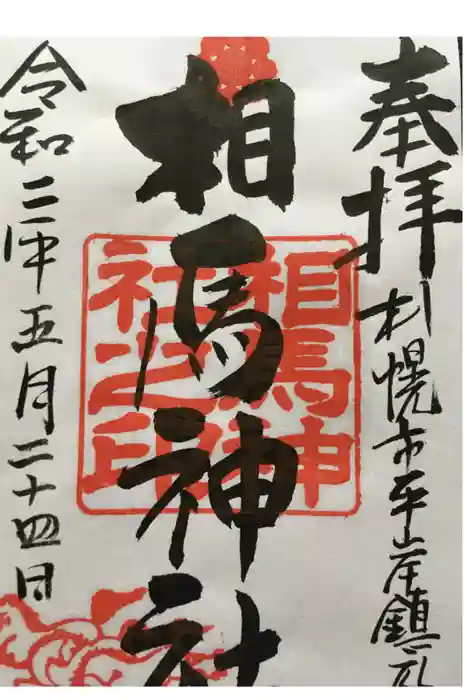 奉拝
札幌市平岸鎮座
相馬神社
相馬神
社之印
令和三年五月二十四日